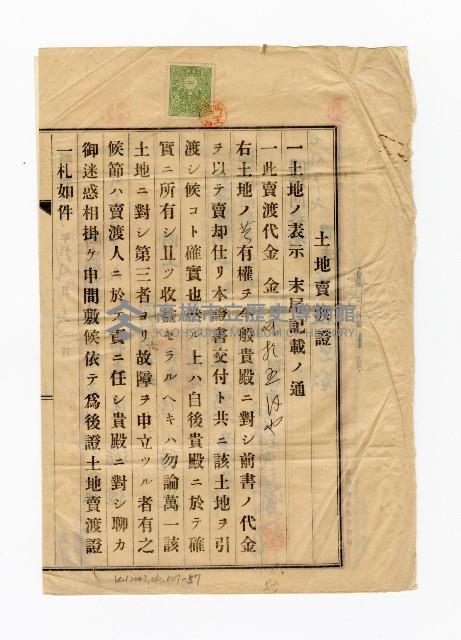 土地賣渡證
一土地ノ表示 末尾記載ノ通
一此賣渡代金 金
右土地ノ 有權ヲ今般貴殿ニ對シ前書ノ代金
ヲ以テ賣却仕リ本證書交付ト共ニ該土地ヲ引
渡シ候コト確實也然ル上ハ自後貴殿ニ於テ確
實ニ所有シ且ツ收益セラルヘキハ勿論萬一該
土地ニ對シ第三者ヨリ故障ヲ申立ツル者有之
候節ハ賣渡人ニ於テ責ニ任シ貴殿ニ對シ聊カ
御迷惑相掛ケ申間敷候依テ爲後證土地賣渡證
一札如件
高雄市立歷史博物館
KAOHSIUNG MUSEUM OF HISTORY